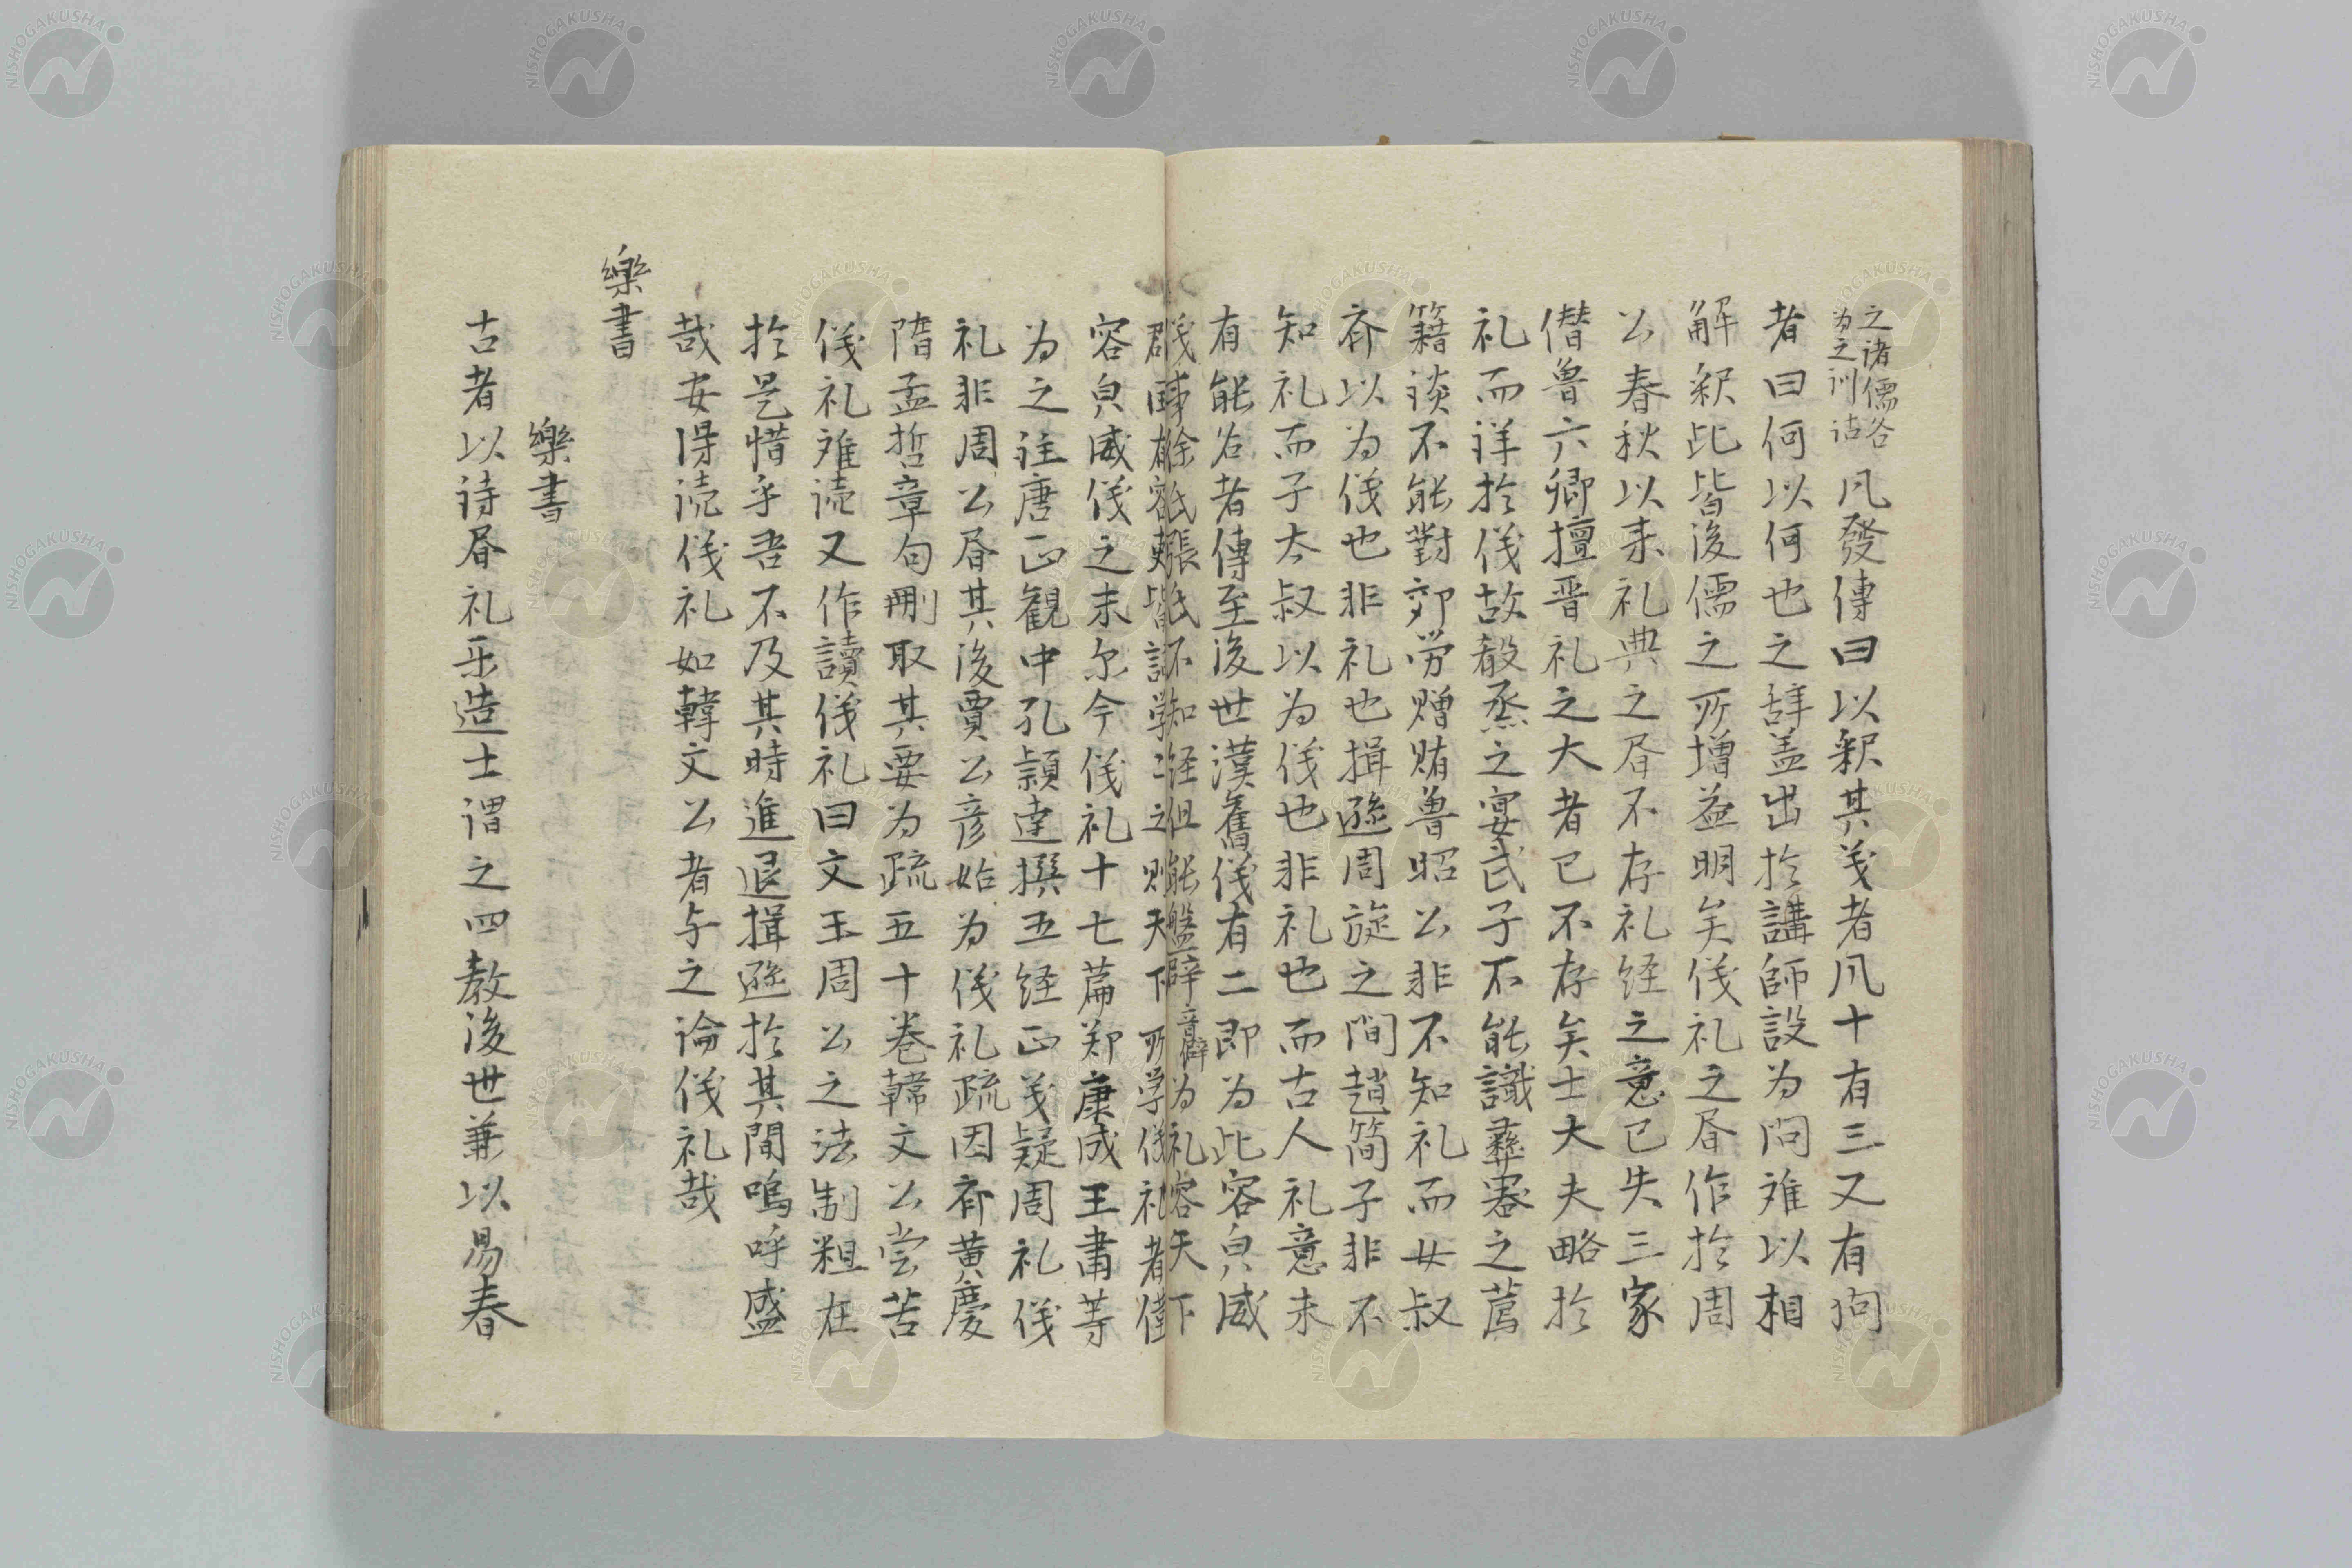 之諸儒各
为之训诂
凡發傳曰以釈其义者凡十有三又有问
者曰何以何也之辞盖出於講師設为问难以相
解釈此皆後儒之所增益明矣仪礼之書作於周
公春秋以来礼典之書不存礼经之意已失三家
僭魯六卿擅晋礼之大者已不存矣士大夫略於
礼而详於仪故殽烝之宴武子不能識彝器之薦
籍谈不能對郊劳赠賄魯昭公非不知礼而女叔
齐以为仪也非礼也揖遜周旋之间趙简子非不
知礼而子太叔以为仪也非礼也而古人礼意未
有能名者傳至後世漢舊仪有二即为此容皃威
仪事徐氏張氏不知经但能盤辟音僻为礼容天下
郡國有容皆詣学之则天下所学仪礼者僅
容皃威仪之末尔今仪礼十七篇郑康成王肅等
为之注唐正观中孔颖達撰五经正义疑周礼仪
礼非周公書其後賈公彦始为仪礼疏因齐黄慶
隋孟哲章句刪取其要为疏五十巻韓文公尝苦
仪礼难读又作讀仪礼曰文王周公之法制粗在
於是惜乎吾不及其時進退揖遜於其間嗚呼盛
哉安得读仪礼如韓文公者与之論仪礼哉
樂書
樂書
古者以诗書礼乐造士谓之四教後世兼以易春